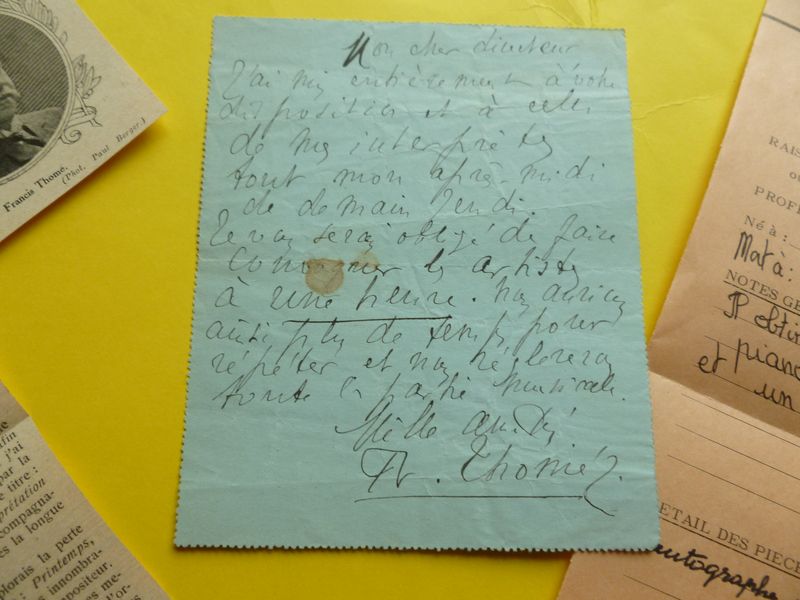 Mon cher directeur
J'ai mis entièrement à votre
disposition et à celle
de mes interprètes
tout mon après midi
de demain Jeudi.
Je vous serai obligé de faire
convoquer les artistes
à une heure. Nous aurions
ainsi plus de temps pour
répéter et nous réglerons
toute la partie musicale.
Mille amitiés
Fr. Thomé
Francis Thomé.
(Phot. Paul Berger.)
afin
j'ai
par la
e titre :
rprétation
compagna-
ès la longue
plorais la perte
: Printemps,
innombra-
mpositeur.
es me-
d'or-
RAIS
ou
PROFE
Né à :
Mort à :
NOTES GÉ
Il obtin
piano
et un
ETAIL DES PIECE
autographe